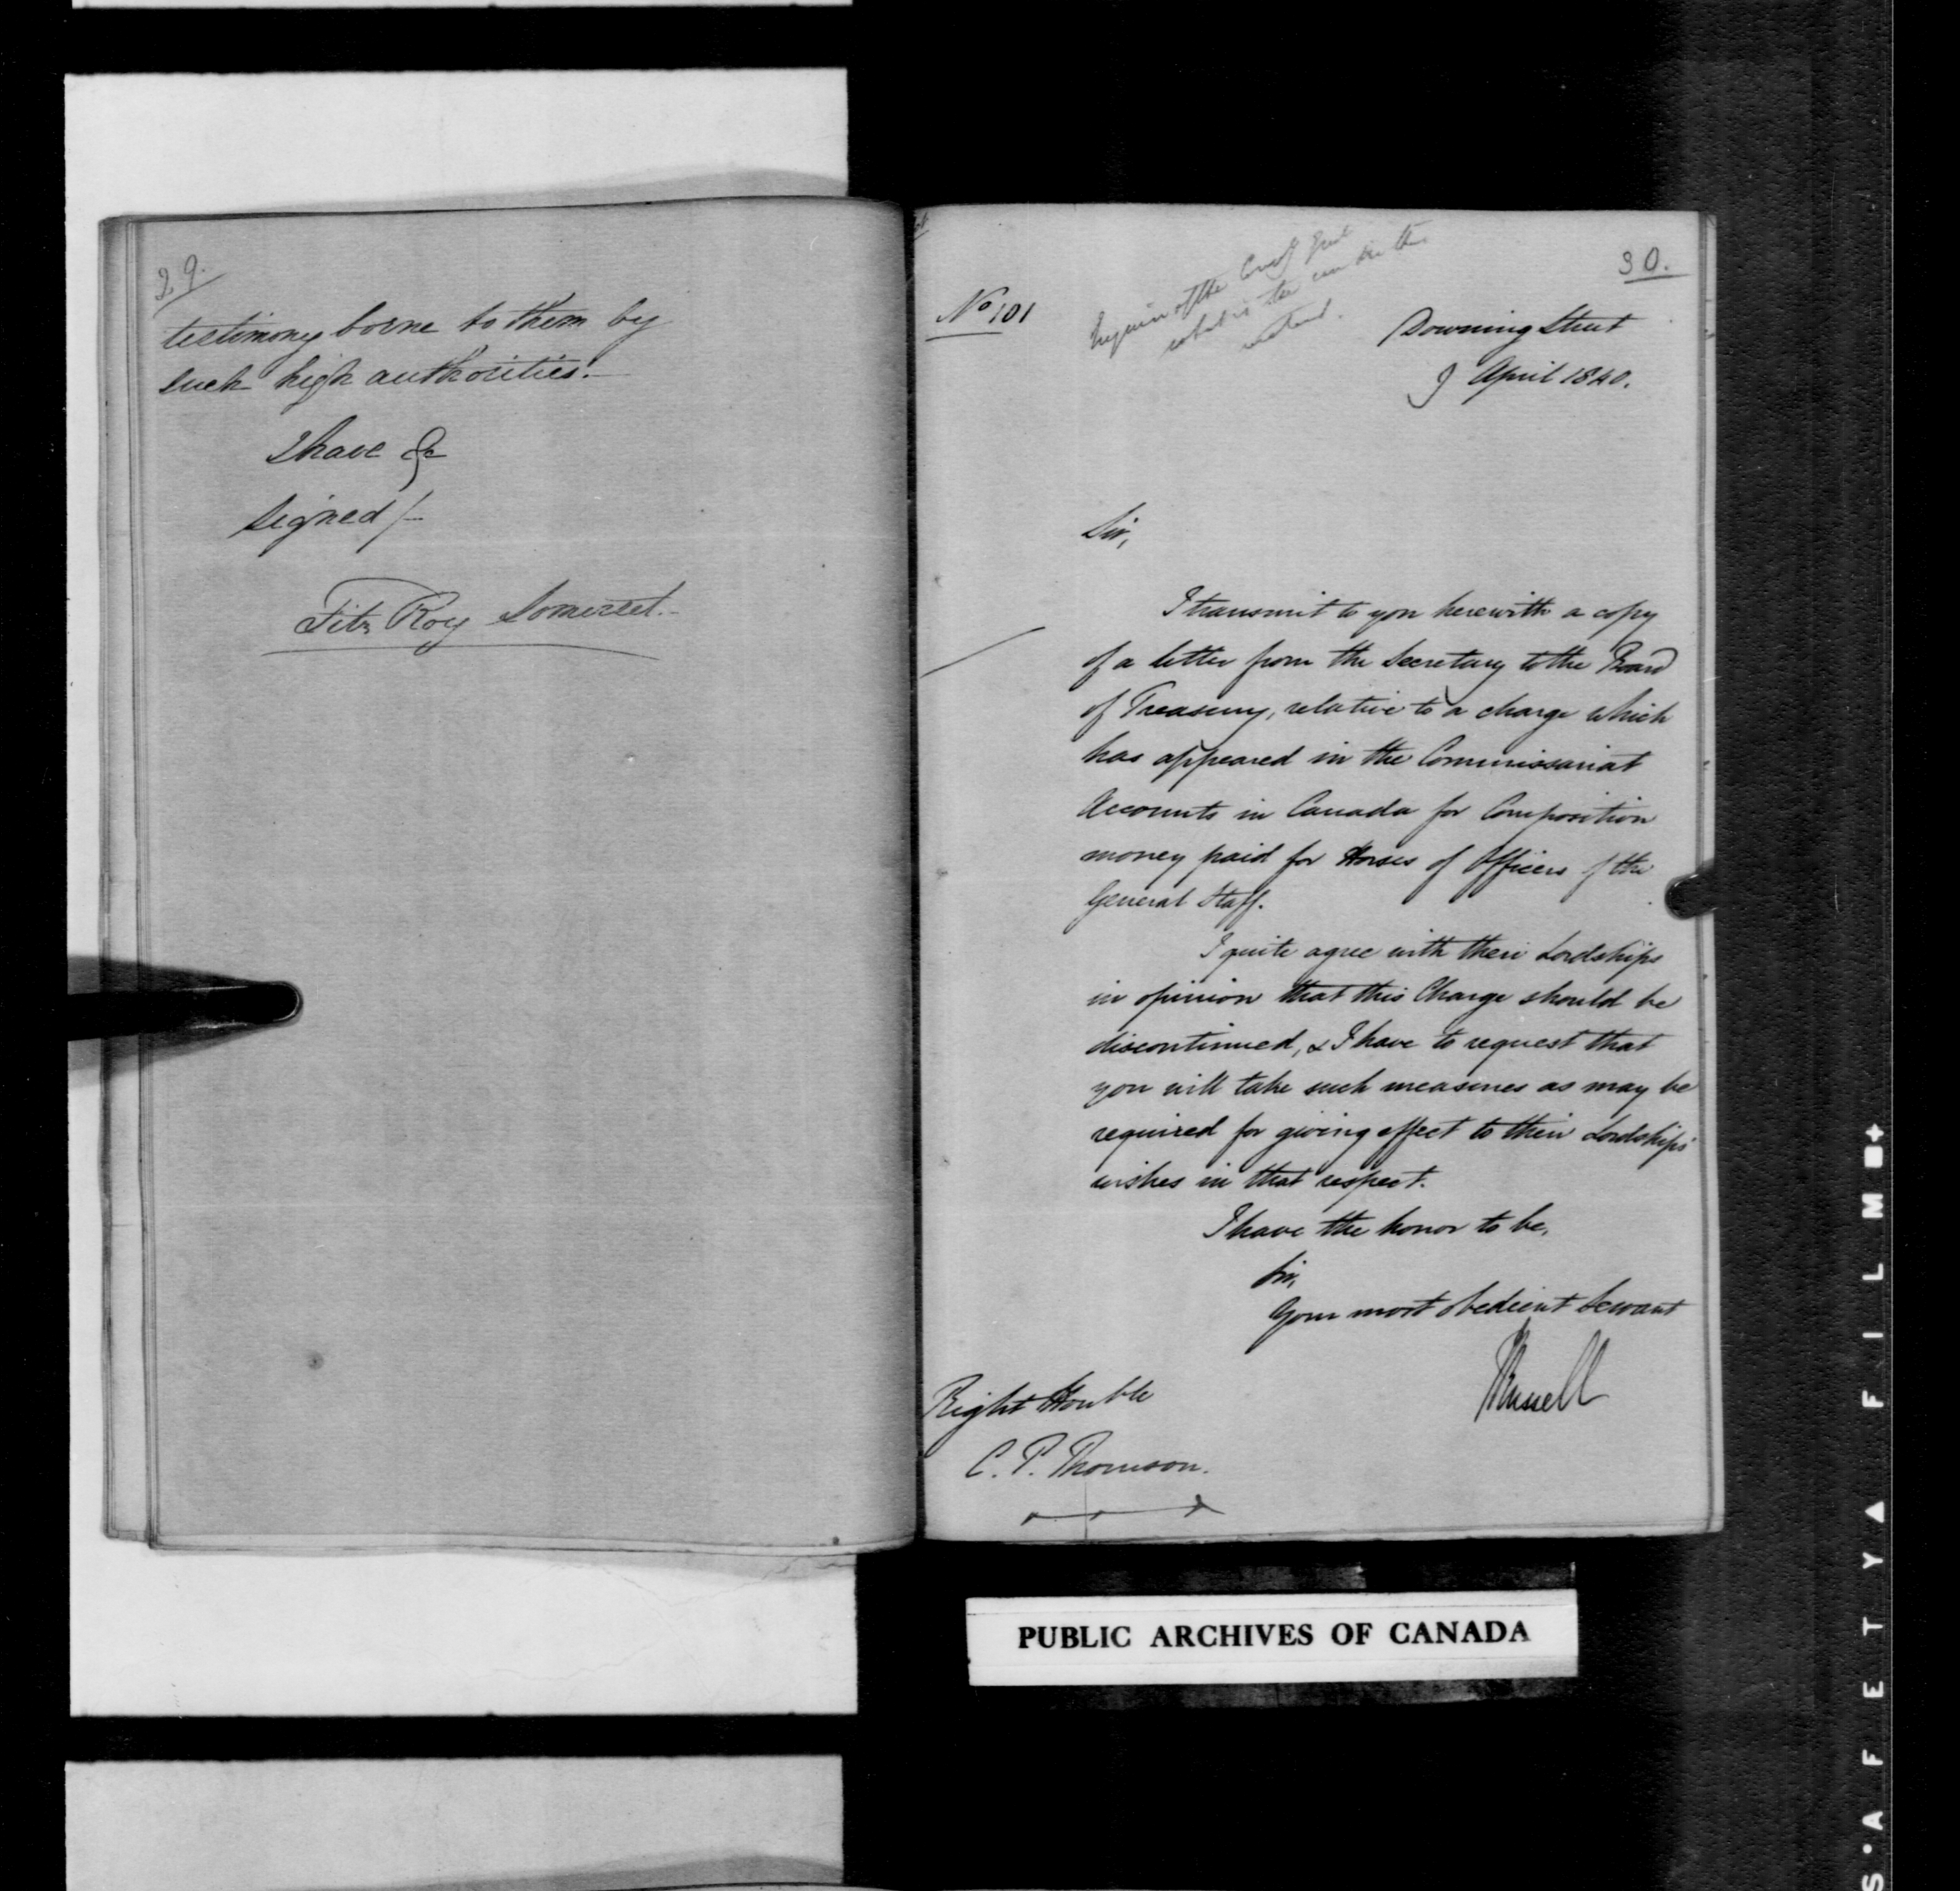 29.
testimony borne to them by
such high authorities.
I have &c
Signed/-
Fitz Roy Somerset.
30.
No 101
Inquire of the
what is the
Downing Street
9 April 1840.
Sir,
I transmit to you herewith a copy
of a letter from the Secretary to the Board
of Treasury, relative to a charge which
has appeared in the Commissariat
Accounts in Canada for Composition
money paid for Horses of Officers of the
General Staff.
I quite agree with their Lordships
in opinion that this Charge should be
discontinued, & I have to request that
you will take such measures as may be
required for giving effect to their Lordships'
wishes in that respect.
I have the honor to be,
Sir,
Your most obedient Servant
J Russell
Right Honble
C. P. Thomson.
PUBLIC ARCHIVES OF CANADA
S·AFETY▲FILM■+